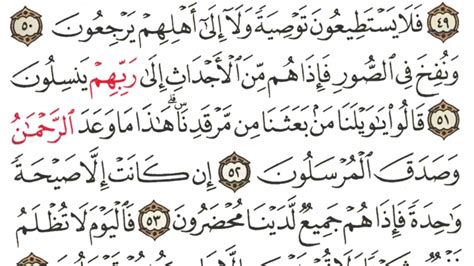 ٤٩ فَلَا يَسْتَطِيعُونَ تَوْصِيَةً وَلَآ إِلَىٰٓ أَهْلِهِمْ يَرْجِعُونَ ٥٠
وَنُفِخَ فِى ٱلصُّورِ فَإِذَا هُم مِّنَ ٱلْأَجْدَاثِ إِلَىٰ رَبِّهِمْ يَنسِلُونَ
٥١ قَالُوا۟ يَٰوَيْلَنَا مَنۢ بَعَثَنَا مِن مَّرْقَدِنَاۗ هَٰذَا مَا وَعَدَ ٱلرَّحْمَٰنُ
وَصَدَقَ ٱلْمُرْسَلُونَ ٥٢ إِن كَانَتْ إِلَّا صَيْحَةً
وَٰحِدَةً فَإِذَا هُمْ جَمِيعٌ لَّدَيْنَا مُحْضَرُونَ ٥٣ فَٱلْيَوْمَ لَا تُظْلَمُ